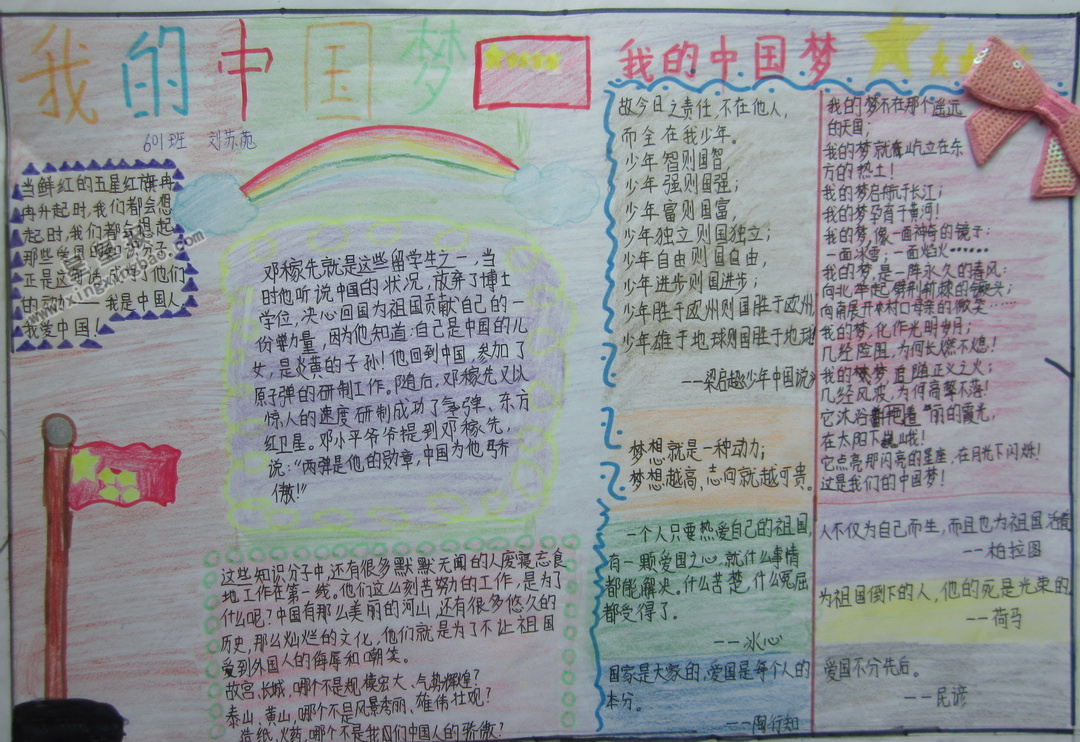 我的中国梦
601班 刘苏苑
当鲜红的五星红旗冉
冉升起时,我们都会想
起时,我们都会想起
那些爱国的知识分子.
正是这
的动力——我是中国人,
我爱中国!
邓稼先就是这些留学生之一,当
时他听说中国的状况,放弃了博士
学位,决心回国为祖国贡献自己的一
份力量,因为他知道:自己是中国的儿
女,是炎黄的子孙!他回到中国,参加了
原子弹的研制工作。随后,邓稼先又以
惊人的速度研制成功了氢弹、东方
红卫星。邓小平爷爷提到邓稼先,
说:“两弹是他的勋章,中国为他骄
傲!”
这些知识分子中,还有很多默默无闻的人废寝忘食
地工作在第一线。他们这么刻苦努力的工作,是为了
什么呢?中国有那么美丽的河山,还有很多悠久的
历史,那么灿烂的文化,他们就是为了不让祖国
受到外国人的侮辱和嘲笑。
故宫、长城,哪个不是规模宏大、气势辉煌?
泰山、黄山,哪个不是风景秀丽、雄伟壮观?
造纸、火药,哪个不是我们中国人的骄傲?
我的中国梦
故今日之责任,不在他人,
而全在我少年。
少年智则国智,
少年强则国强;
少年富则国富,
少年独立则国独立;
少年自由则国自由,
少年进步则国进步;
少年胜于欧洲则国胜于欧洲,
少年雄于地球则国胜于地球!
——梁启超《少年中国说》
梦想就是一种动力;
梦想越高,志向就越可贵。
一个人只要热爱自己的祖国,
有一颗爱国之心,就什么事情
都能解决。什么苦楚,什么冤屈
都受得了。
——冰心
国家是大家的,爱国是每个人的
本分。
——陶行知
我的梦不在那个遥远
的天国;
我的梦就屹立在东
方的热土!
我的梦启航于长江;
我的梦孕育于黄河!
我的梦,像一面神奇的镜子:
一面冰雪;一面焰火······
我的梦,是一阵永久的春风:
向北举起
向南展开村口母亲的微笑······
我的梦,化作光明岁月;
几经险图,为何长燃不熄!
我的梦,追随正义之火;
几经风波,为何高攀不落!
它沐浴 丽的霞光,
在太阳下巍峨!
它点亮那闪亮的星座,在月光下闪烁!
这是我们的中国梦!
人不仅为自己而生,而且也为祖国活着
——柏拉图
为祖国倒下的人,他的死是光荣的
——荷马
爱国不分先后。
——民谚